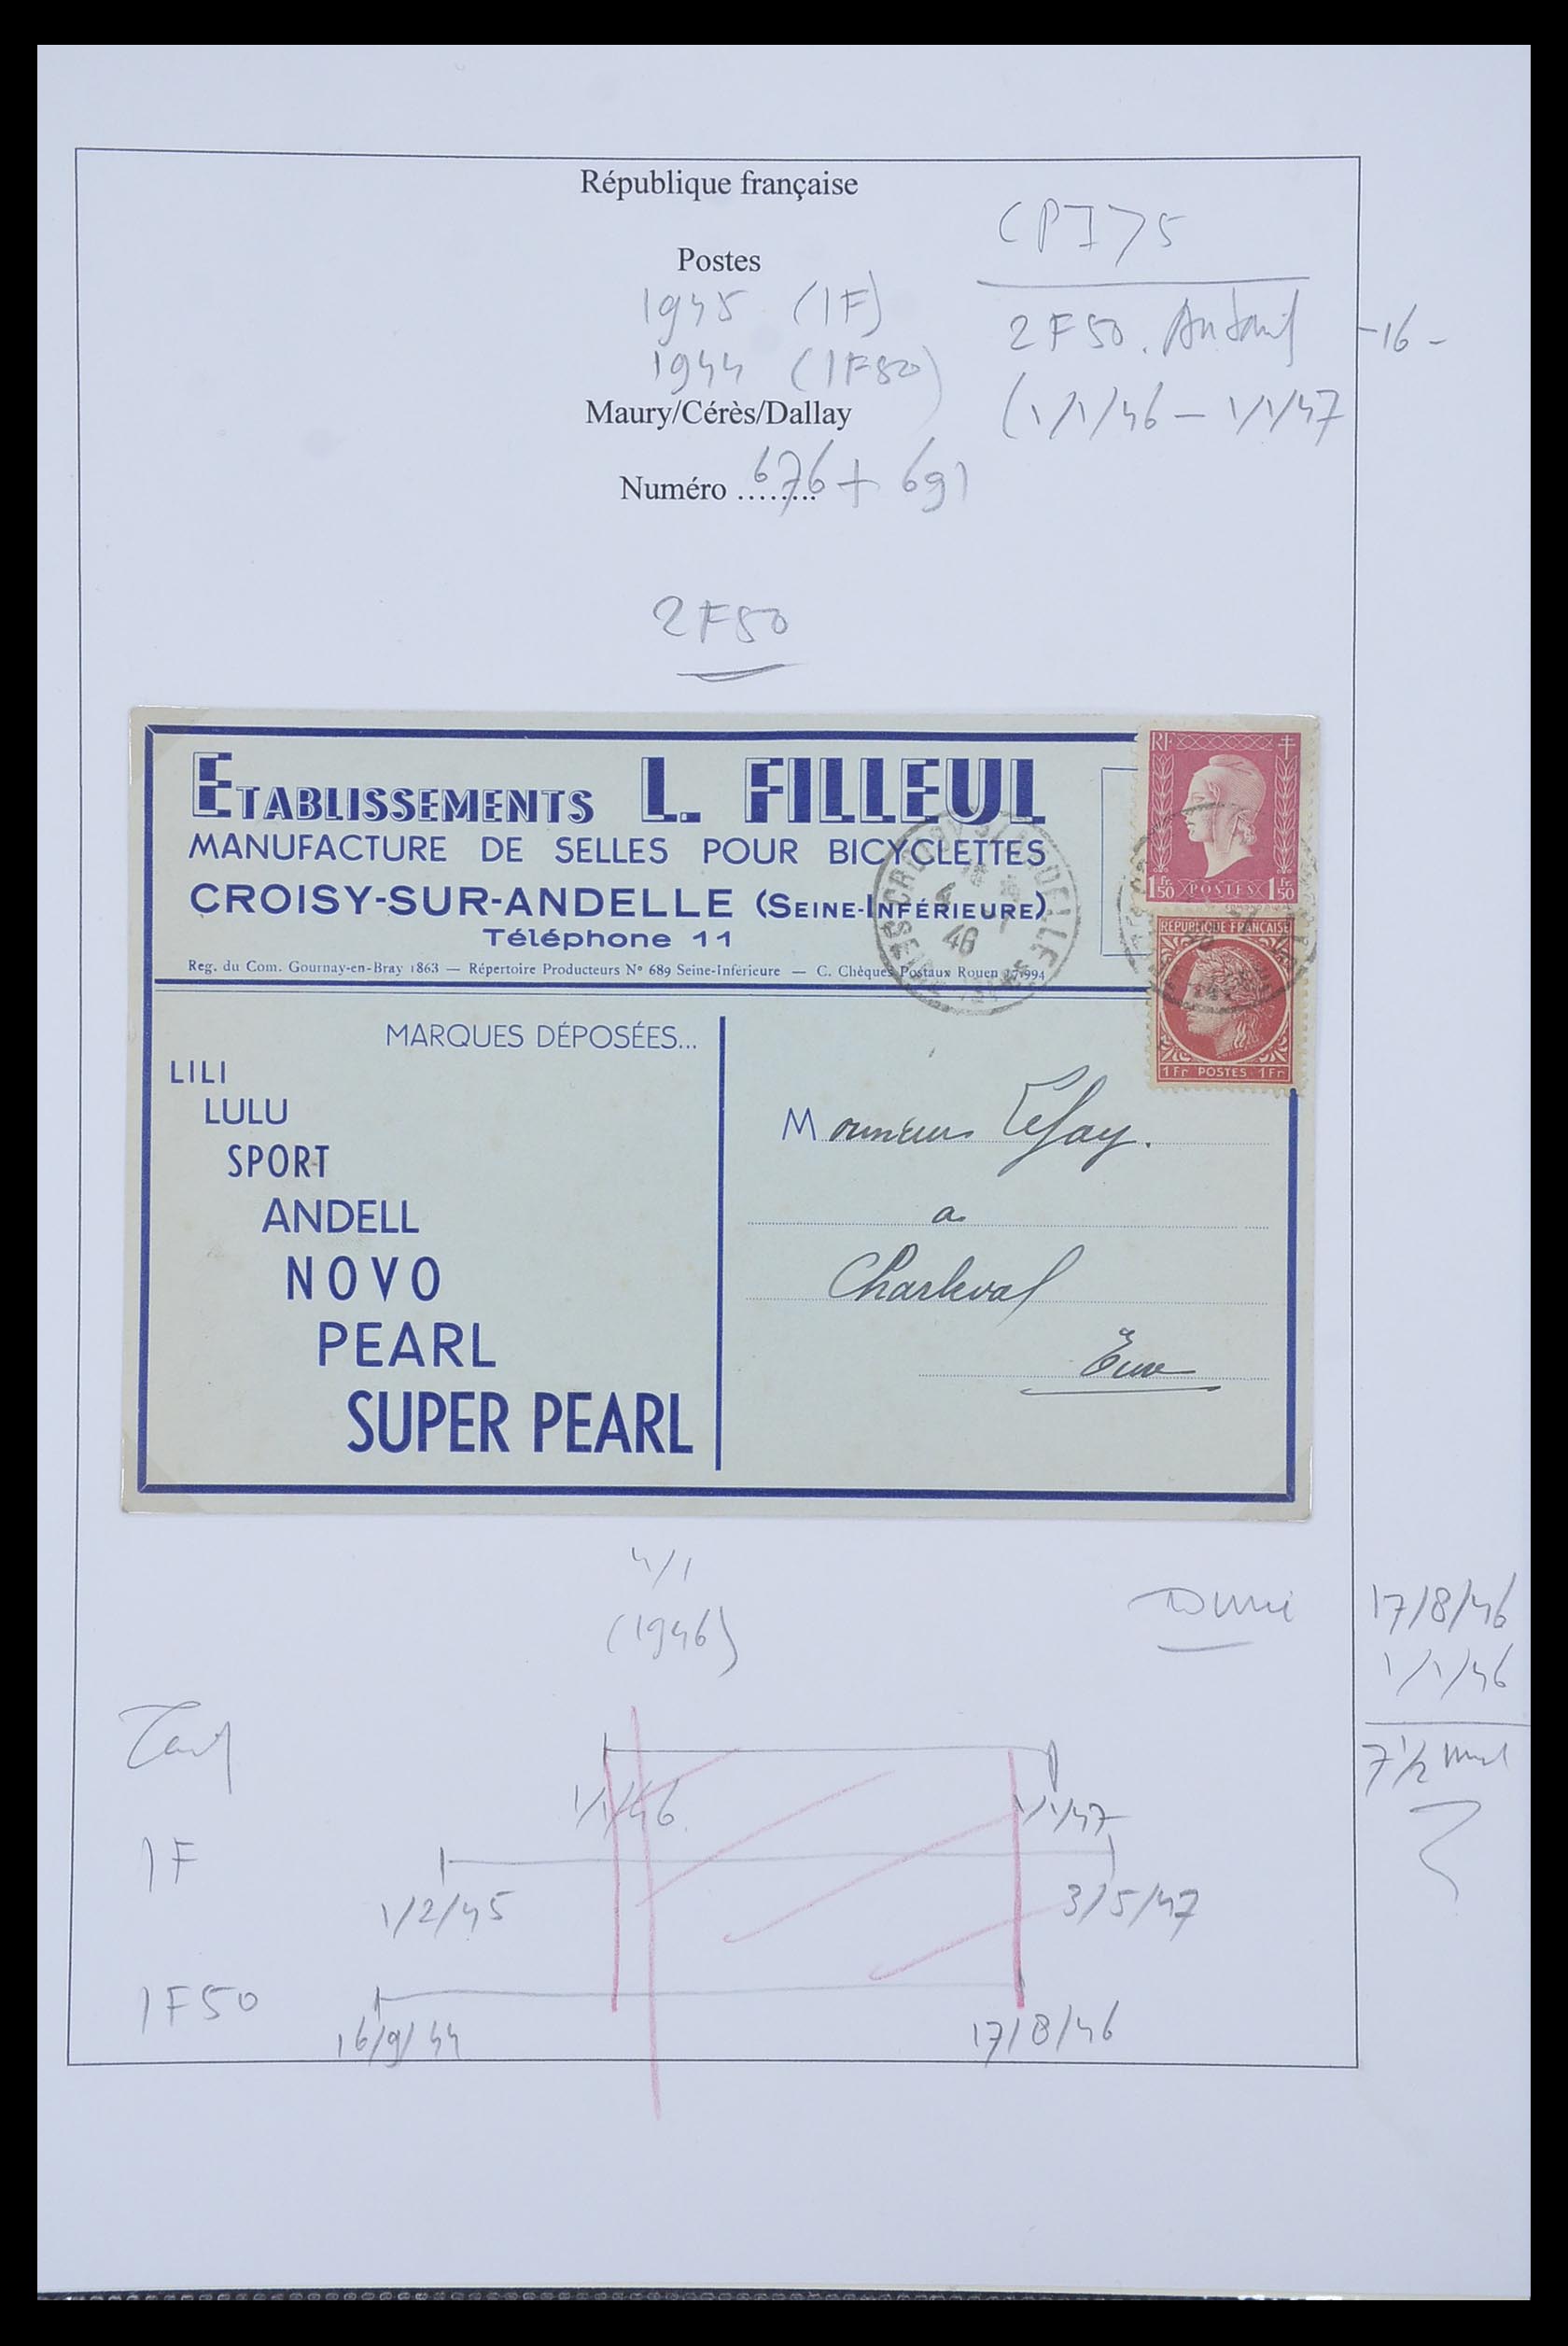 République française
CPI > 5
Postes
1945 (1F)
2F50.
-16-
1944 (1F50)
(1/1/46 – 1/1/47
Maury/Cérès/Dallay
Numéro ........ 676 + 691
2F50
ETABLISSEMENTS L. FILLEUL
MANUFACTURE DE SELLES POUR BICYCLETTES
CROISY-SUR-ANDELLE (SEINE-INFÉRIEURE)
Téléphone 11
Reg. du Com. Gournay-en-Bray 1863 — Répertoire Producteurs N° 689 Seine-Inférieure — C. Chèques Postaux Rouen
RF
1 Fr. 50 POSTES 1 Fr. 50
RÉPUBLIQUE FRANÇAISE
1 Fr POSTES 1 Fr
4 1
46
MARQUES DÉPOSÉES...
LILI
LULU
SPORT
ANDELL
NOVO
PEARL
SUPER PEARL
Monsieur Lefay.
a
Charleval
Eure
4/1
(1946)
17/8/46
1/1/46
7 1/2
Tarif
1/1/46
1/1/47
1F
1/2/45
3/5/47
1F50
16/9/44
17/8/46